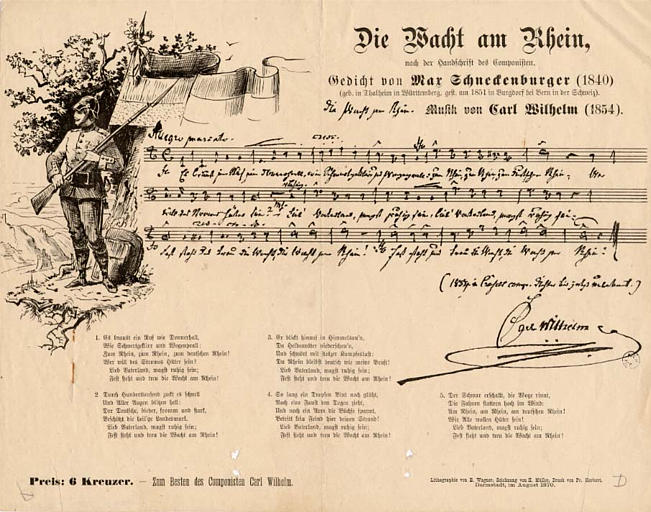 Die Wacht am Rhein,
nach der Handschrift des Componisten.
Gedicht von Max Schneckenburger (1840)
(geb. in Thalheim in Württemberg, gest. um 1851 in Burgdorf bei Bern in der Schweiz).
Die Wacht am Rhein. Musik von Carl Wilhelm (1854).
Allegro
Es braust ein Ruf wie Donnerhall, wie Schwertgeklirr und Wogenprall: Zum Rhein, zum Rhein, zum deutschen Rhein! Wer
will des Stromes Hüter sein? Lieb Vaterland, magst ruhig sein, lieb Vaterland, magst ruhig sein:
Fest steht und treu die Wacht, die Wacht am Rhein! Fest steht und treu die Wacht, die Wacht am Rhein!
Carl Wilhelm
1. Es braust ein Ruf wie Donnerhall,
Wie Schwertgeklirr und Wogenprall:
Zum Rhein, zum Rhein, zum deutschen Rhein!
Wer will des Stromes Hüter sein?
Lieb Vaterland, magst ruhig sein;
Fest steht und treu die Wacht am Rhein!
2. Durch Hunderttausend zuckt es schnell
Und Aller Augen blitzen hell:
Der Deutsche, bieder, fromm und stark,
Beschützt die heil'ge Landesmark.
Lieb Vaterland, magst ruhig sein;
Fest steht und treu die Wacht am Rhein!
3. Er blickt hinauf in Himmelsau'n,
Da Heldenväter niederschau'n,
Und schwört mit stolzer Kampfeslust:
Du Rhein bleibst deutsch wie meine Brust!
Lieb Vaterland, magst ruhig sein;
Fest steht und treu die Wacht am Rhein!
4. So lang ein Tropfen Blut noch glüht,
Noch eine Faust den Degen zieht,
Und noch ein Arm die Büchse spannt,
Betritt kein Feind hier deinen Strand!
Lieb Vaterland, magst ruhig sein;
Fest steht und treu die Wacht am Rhein!
5. Der Schwur erschallt, die Woge rinnt,
Die Fahnen flattern hoch im Wind:
Am Rhein, am Rhein, am deutschen Rhein!
Wir Alle wollen Hüter sein!
Lieb Vaterland, magst ruhig sein;
Fest steht und treu die Wacht am Rhein!
Preis: 6 Kreuzer. — Zum Besten des Componisten Carl Wilhelm.
Lithographie von E. Wagner; Zeichnung von H. Müller; Druck von Fr. Herbert.
Darmstadt, im August 1870.